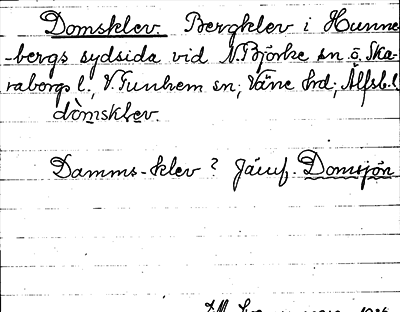 Domsklev Bergklev i Hunne
-bergs sydsida vid N. Björke sn ö. Ska-
raborgs l., V. Tunhem sn; Väne hrd; Älfsb. l.
dòmsklev.
Damms-klev? Jämf. Domsjön